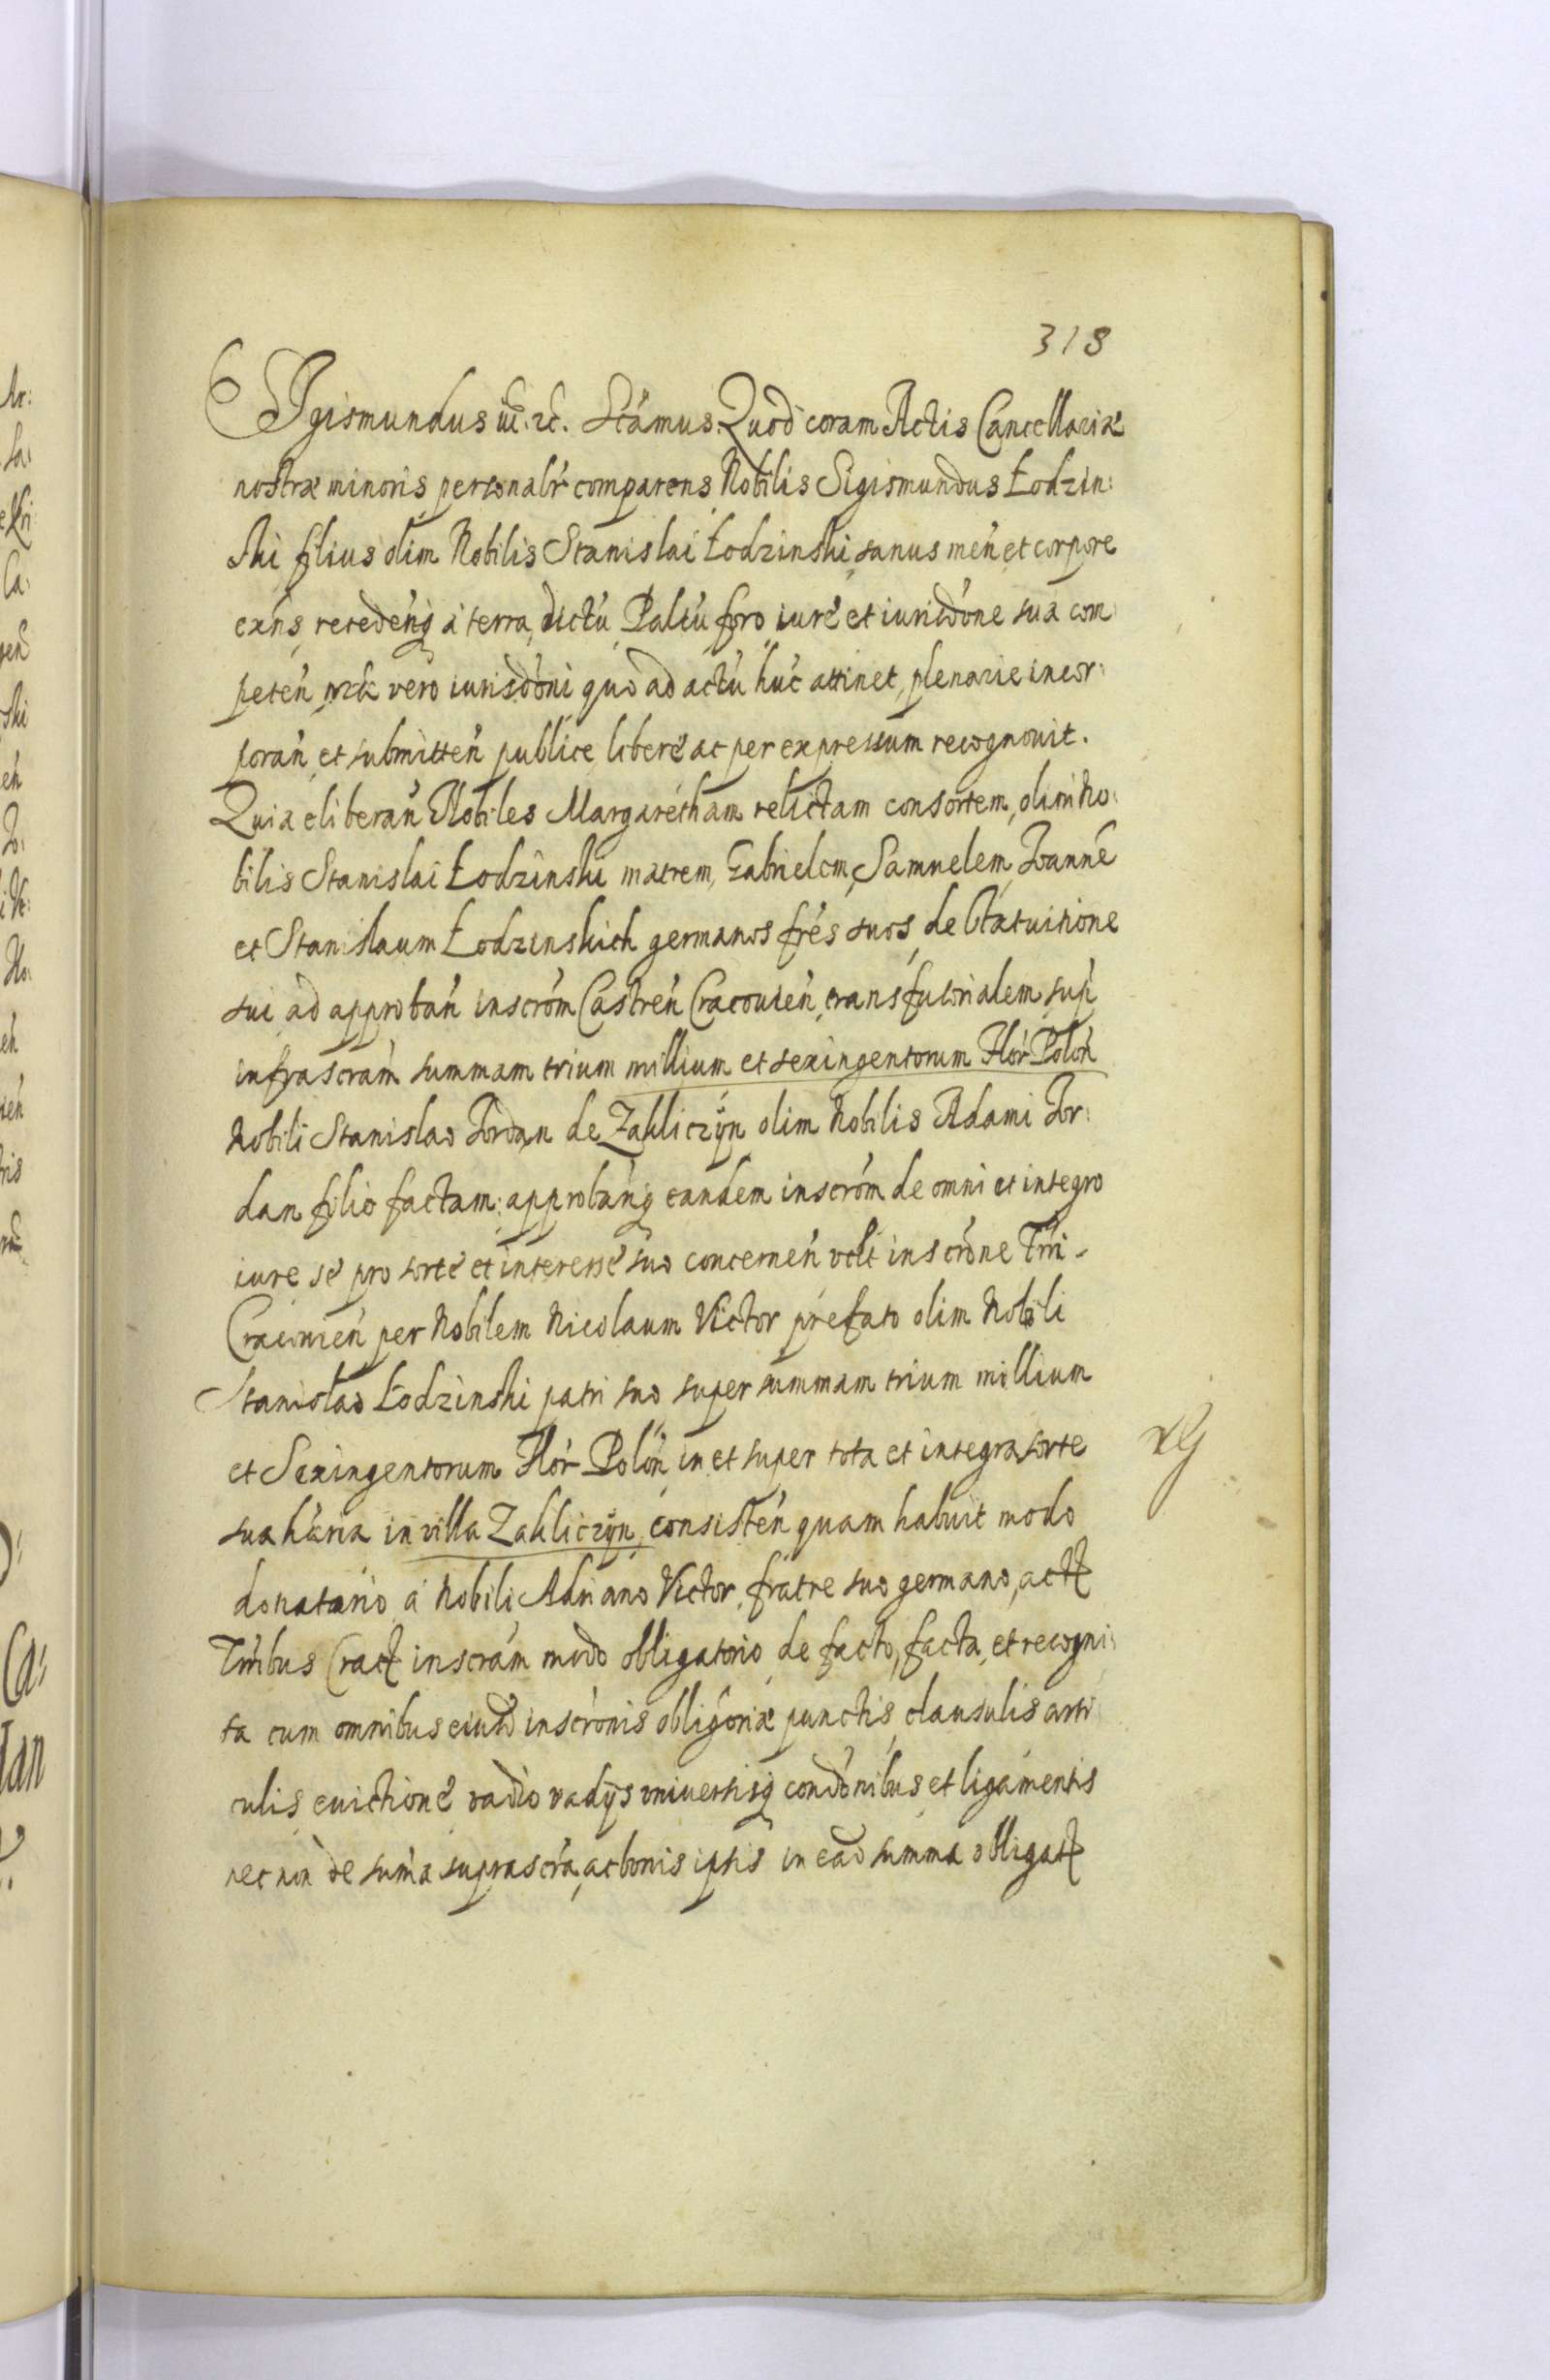 318
Sigismundus III. etc. Scámus. Quod coram Actis Cancellariæ
nostræ minoris personalr̃ comparens Nobilis Sigismundus Łodzin:
ski filius olim Nobilis Stanislai Łodzinski sanus meń et corpore
exńs recedeńq a terra, dictú Palcú foro iure et iurisdóne sua com
peteń, vero iurisdóni quo ad actú húc attinet, plenarie incor:
porań et submitteń publice libere ac per expressum recognovit.
Quia eliberań Nobiles Margaretham relictam consortem, olim No:
bilis Stanislai Łodzinski matrem, Gabrielem, Samuelem, Joanné
et Stanislaum Łodzinskich germanos frés suos, de statuitione
sui ad approbań inscróm Castreń Cracovień transfusorialem, sup
infrascrám summam trium millium et sexingentorum Flor Poloń
Nobili Stanislao Jordan de Zakliczÿn olim Nobilis Adami Jor:
dan filio factam: approbáńq eandem inscróm de omni et integro
iure se pro sorte et interesse suo concerneń inscróne Trri
Cracovień per Nobilem Nicolaum Victor præfato olim Nobili
Stanislao Łodzinski patri suo super summam trium millium
et Sexingentorum Flor Poloń in et super tota et integra sorte
sua hæria in villa Zakliczÿn, consisteń quam habuit modo
donatario a Nobili Adriano Victor, fratre suo germano, act
Trribus Crac inscrám modo obligatorio de facto, facta, et recogni:
ta cum omnibus eiusd inscrónis obligóriæ punctis, clausulis arti
culis, evictione vadio vadÿs universisq condónibus et ligamentis
nec non de suma suprascrá, ac bonis ipsis in ead summa obligat